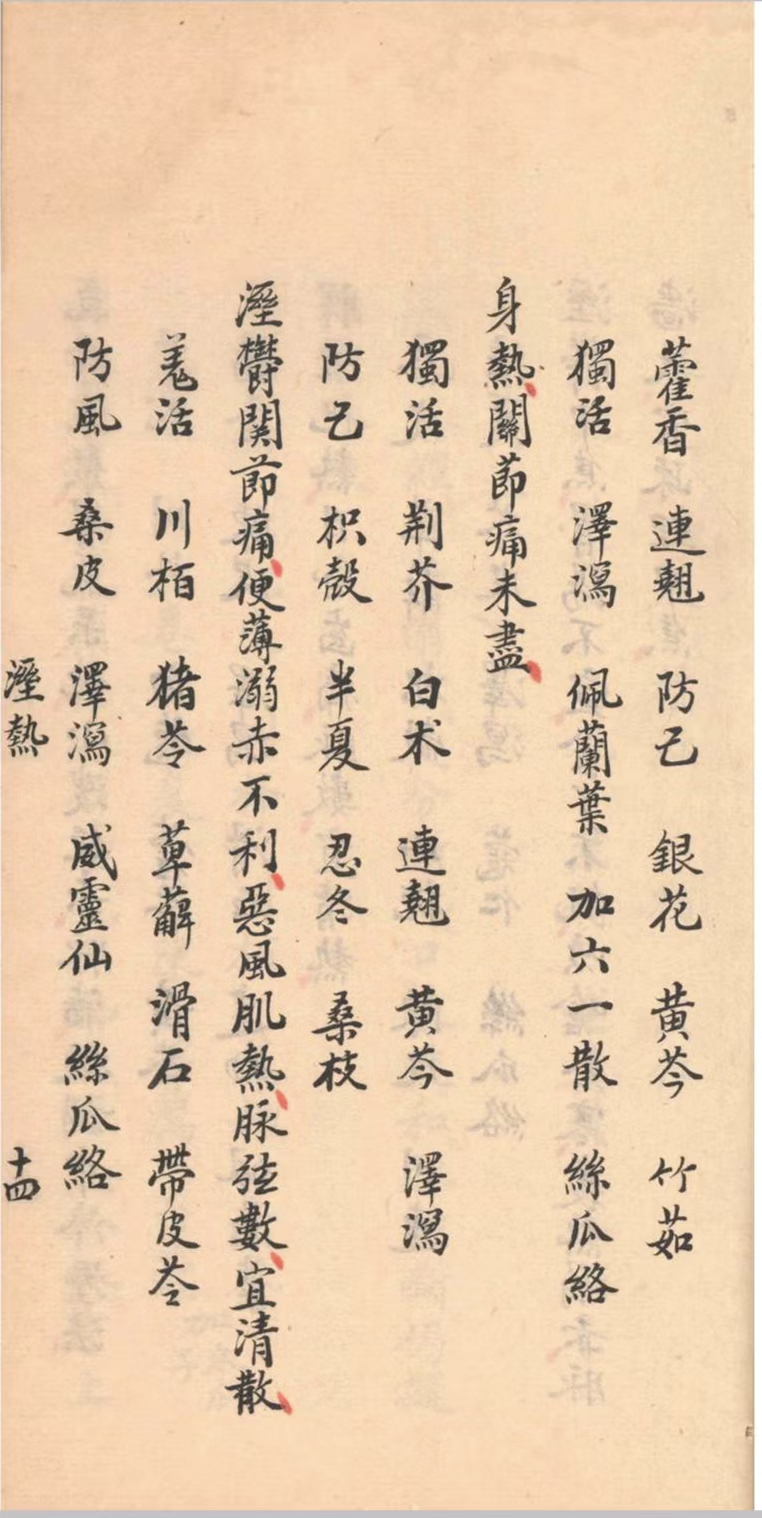 藿香　連翹　防己　銀花　黄芩　竹茹
獨活　澤瀉　佩蘭葉　加六一散　絲瓜絡
身熱、關節痛未盡、
獨活　荆芥　白术　連翹　黄芩　澤瀉
防己　枳殼　半夏　忍冬　桑枝
溼欝関節痛、便薄溺赤不利、惡風肌熱、脉弦數、宜清散、
羗活　川栢　猪苓　萆薢　滑石　帶皮苓
防風　桑皮　澤瀉　威靈仙　絲瓜絡
溼熱　十四